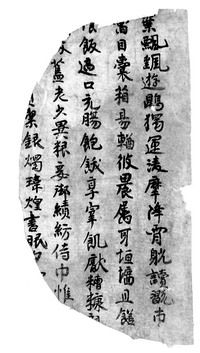 葉飄颻遊鵾獨運淩摩降霄躭讀翫市
寓目囊箱易輶彼畏属耳垣墻具饍
飯適口充腸飽飫享宰飢猒糟糠
舊老少異粮妾御績紡侍巾帷
潔銀燭瑋煌晝眠夕